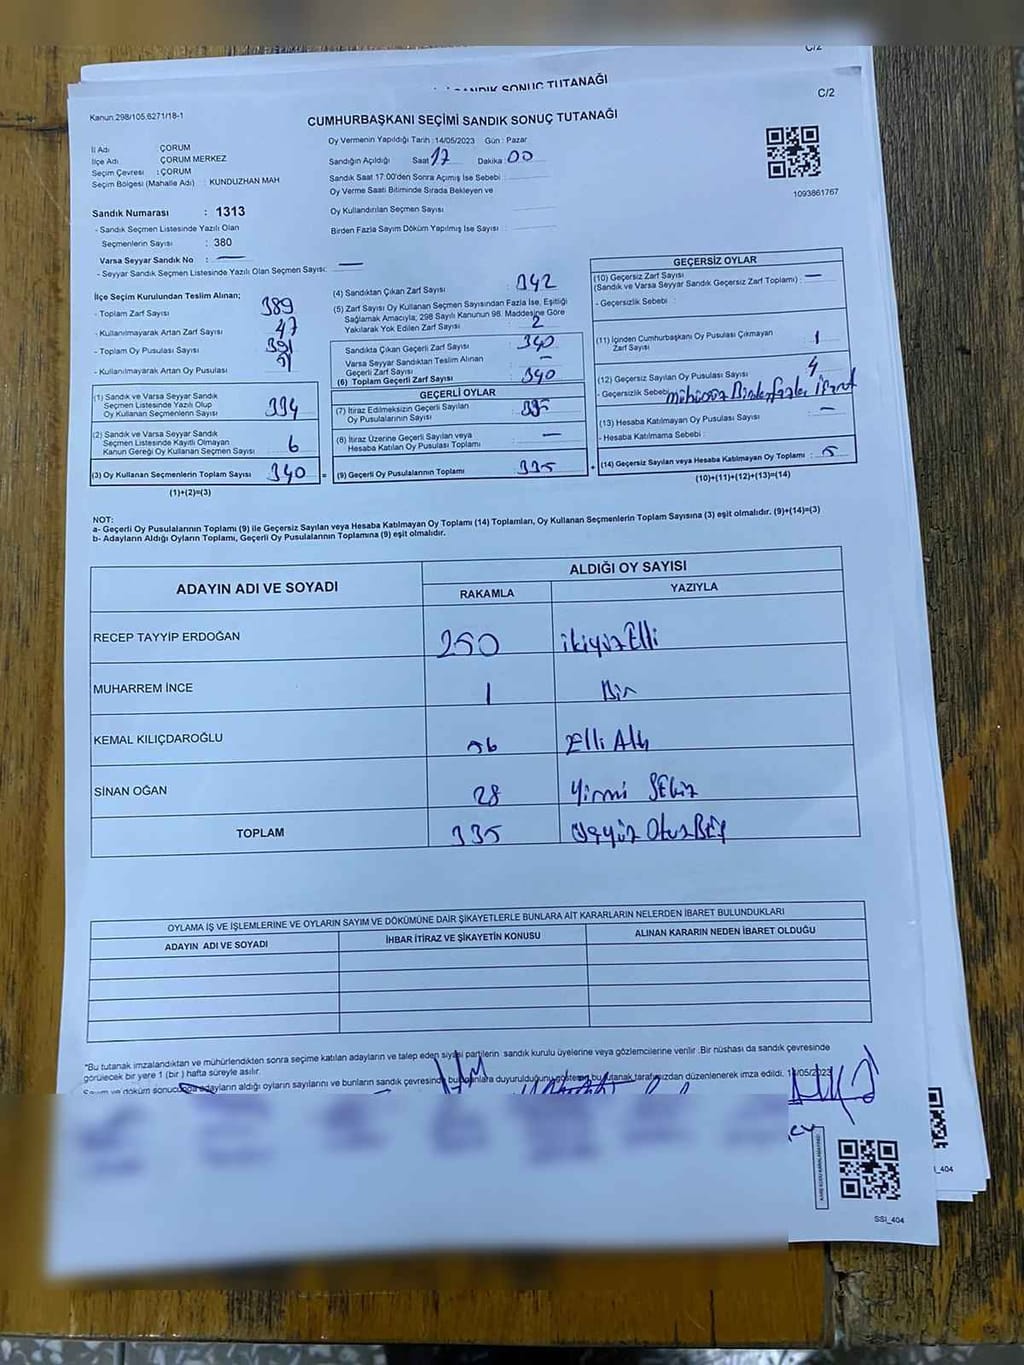 C/2
SANDIK SONUÇ TUTANAĞI
Kanun.298/105.6271/18-1
CUMHURBAŞKANI SEÇİMİ SANDIK SONUÇ TUTANAĞI
C/2
İl Adı : ÇORUM
İlçe Adı : ÇORUM MERKEZ
Seçim Çevresi : ÇORUM
Seçim Bölgesi (Mahalle Adı) : KUNDUZHAN MAH
Sandık Numarası : 1313
- Sandık Seçmen Listesinde Yazılı Olan
Seçmenlerin Sayısı : 380
Varsa Seyyar Sandık No : —
- Seyyar Sandık Seçmen Listesinde Yazılı Olan Seçmen Sayısı: —
Oy Vermenin Yapıldığı Tarih :14/05/2023 Gün : Pazar
Sandığın Açıldığı Saat 17 Dakika 00
Sandık Saat 17:00'den Sonra Açımış İse Sebebi :
Oy Verme Saati Bitiminde Sırada Bekleyen ve
Oy Kullandırılan Seçmen Sayısı
Birden Fazla Sayım Döküm Yapılmış İse Sayısı :
1093861767
İlçe Seçim Kurulundan Teslim Alınan;
- Toplam Zarf Sayısı 389
- Kullanılmayarak Artan Zarf Sayısı 47
- Toplam Oy Pusulası Sayısı 391
- Kullanılmayarak Artan Oy Pusulası
(1) Sandık ve Varsa Seyyar Sandık
Seçmen Listesinde Yazılı Olup
Oy Kullanan Seçmenlerin Sayısı 334
(2) Sandık ve Varsa Seyyar Sandık
Seçmen Listesinde Kayıtlı Olmayan
Kanun Gereği Oy Kullanan Seçmen Sayısı 6
(3) Oy Kullanan Seçmenlerin Toplam Sayısı 340 =
(1)+(2)=(3)
(4) Sandıktan Çıkan Zarf Sayısı : 342
(5) Zarf Sayısı Oy Kullanan Seçmen Sayısından Fazla İse, Eşitliği
Sağlamak Amacıyla; 298 Sayılı Kanunun 98. Maddesine Göre
Yakılarak Yok Edilen Zarf Sayısı : 2
Sandıkta Çıkan Geçerli Zarf Sayısı : 340
Varsa Seyyar Sandıktan Teslim Alınan
Geçerli Zarf Sayısı : —
(6) Toplam Geçerli Zarf Sayısı : 340
GEÇERLİ OYLAR
(7) İtiraz Edilmeksizin Geçerli Sayılan
Oy Pusulalarının Sayısı : 335
(8) İtiraz Üzerine Geçerli Sayılan veya
Hesaba Katılan Oy Pusulası Toplamı : —
(9) Geçerli Oy Pusulalarının Toplamı : 335 +
GEÇERSİZ OYLAR
(10) Geçersiz Zarf Sayısı
(Sandık ve Varsa Seyyar Sandık Geçersiz Zarf Toplamı) : —
- Geçersizlik Sebebi :
(11) İçinden Cumhurbaşkanı Oy Pusulası Çıkmayan
Zarf Sayısı : 1
(12) Geçersiz Sayılan Oy Pusulası Sayısı : 4
- Geçersizlik Sebebi
(13) Hesaba Katılmayan Oy Pusulası Sayısı : —
- Hesaba Katılmama Sebebi :
(14) Geçersiz Sayılan veya Hesaba Katılmayan Oy Toplamı : 5
(10)+(11)+(12)+(13)=(14)
NOT:
a- Geçerli Oy Pusulalarının Toplamı (9) ile Geçersiz Sayılan veya Hesaba Katılmayan Oy Toplamı (14) Toplamları, Oy Kullanan Seçmenlerin Toplam Sayısına (3) eşit olmalıdır. (9)+(14)=(3)
b- Adayların Aldığı Oyların Toplamı, Geçerli Oy Pusulalarının Toplamına (9) eşit olmalıdır.
ADAYIN ADI VE SOYADI ALDIĞI OY SAYISI
RAKAMLA YAZIYLA
RECEP TAYYİP ERDOĞAN 250 ikiyüzElli
MUHARREM İNCE 1 Bir
KEMAL KILIÇDAROĞLU 56 Elli Altı
SİNAN OĞAN 28 Yirmi Sekiz
TOPLAM 335 Üçyüz OtuzBeş
OYLAMA İŞ VE İŞLEMLERİNE VE OYLARIN SAYIM VE DÖKÜMÜNE DAİR ŞİKAYETLERLE BUNLARA AİT KARARLARIN NELERDEN İBARET BULUNDUKLARI
ADAYIN ADI VE SOYADI İHBAR İTİRAZ VE ŞİKAYETİN KONUSU ALINAN KARARIN NEDEN İBARET OLDUĞU
*Bu tutanak imzalandıktan ve mühürlendikten sonra seçime katılan adayların ve talep eden siyasi partilerin sandık kurulu üyelerine veya gözlemcilerine verilir .Bir nüshası da sandık çevresinde
görülecek bir yere 1 (bir ) hafta süreyle asılır.
Sayım ve döküm sonucunda adayların aldığı oyların sayılarını ve bunların sandık çevresinde bulunanlara duyurulduğunu gösteren bu tutanak tarafımızdan düzenlenerek imza edildi. 14/05/2023
SSI_404